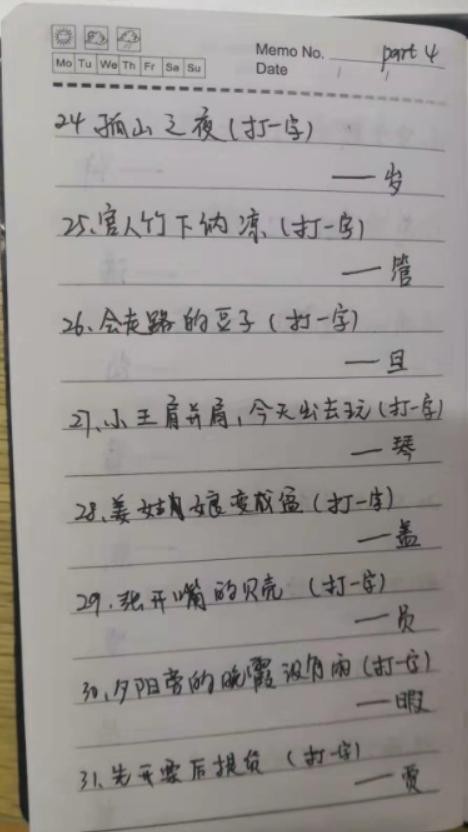 Mo Tu We Th Fr Sa Su
Memo No. part 4
Date
24.孤山之夜(打一字)
——岁
25、官人竹下纳凉(打一字)
——管
26、会走路的豆子(打一字)
——
27、小王肩并肩,今天出去玩(打一字)
——琴
28、姜姑娘变成盆(打一字)
——盖
29、张开嘴的贝壳(打一字)
——员
30、夕阳旁的晚霞没有雨(打一字)
——暇
31、先开要后提货(打一字)
——贾